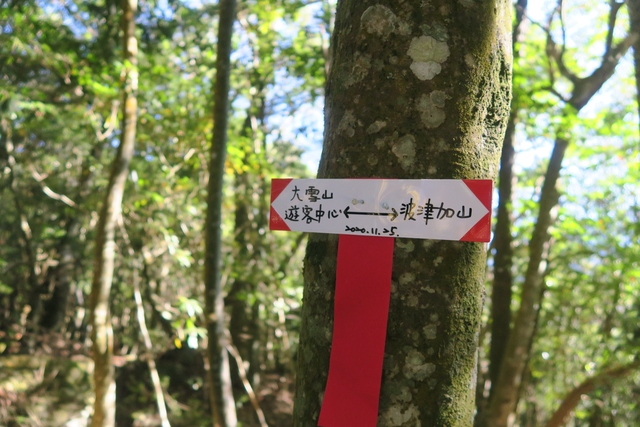 大雪山
遊客中心←→波津加山
2020.11.25.